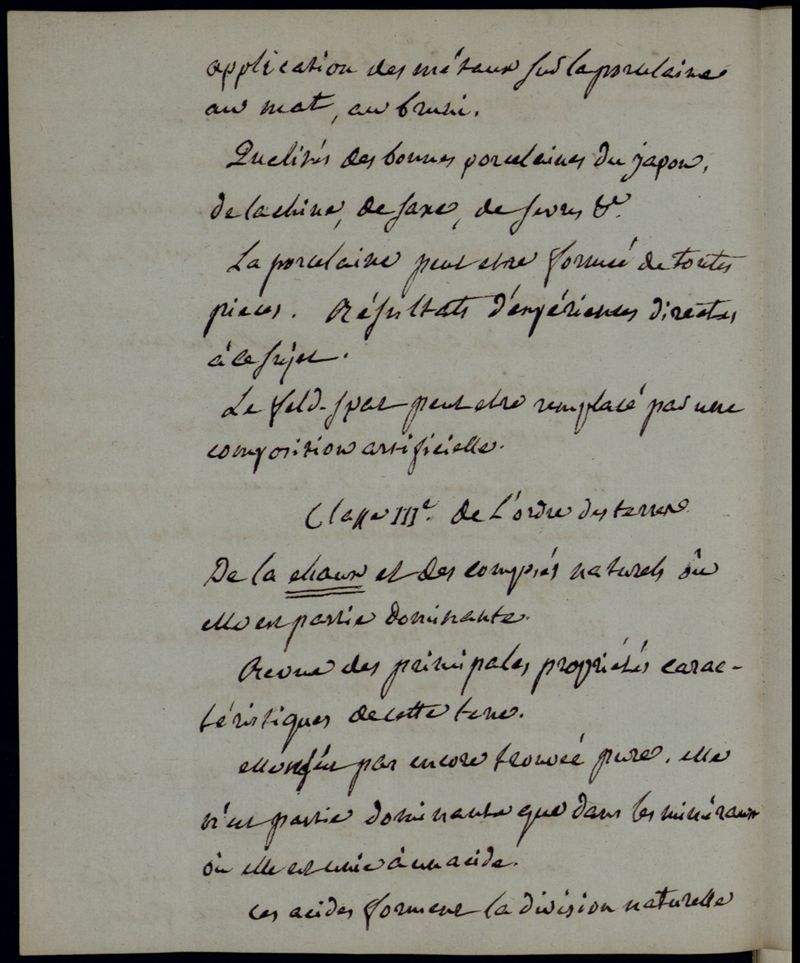 application des métaux sur la porcelaine
au mat, au bruni.
Qualités des bonnes porcelaines du japon,
de la chine, de saxe, de sevres &c.
La porcelaine peut etre formée de toutes
pieces. Résultats d'expériences directes
à ce sujet.
Le feld-spat peut etre remplacé par une
composition artificielle.
Classe IIIe. de L'ordre des terres
De la chaux et des composés naturels où
elle est partie dominante.
Revue des principales propriétés carac-
téristiques de cette terre.
elle n'est pas encore trouvée pure. elle
n'est partie dominante que dans les minéraux
où elle est unie à un acide.
ces acides forment la division naturelle